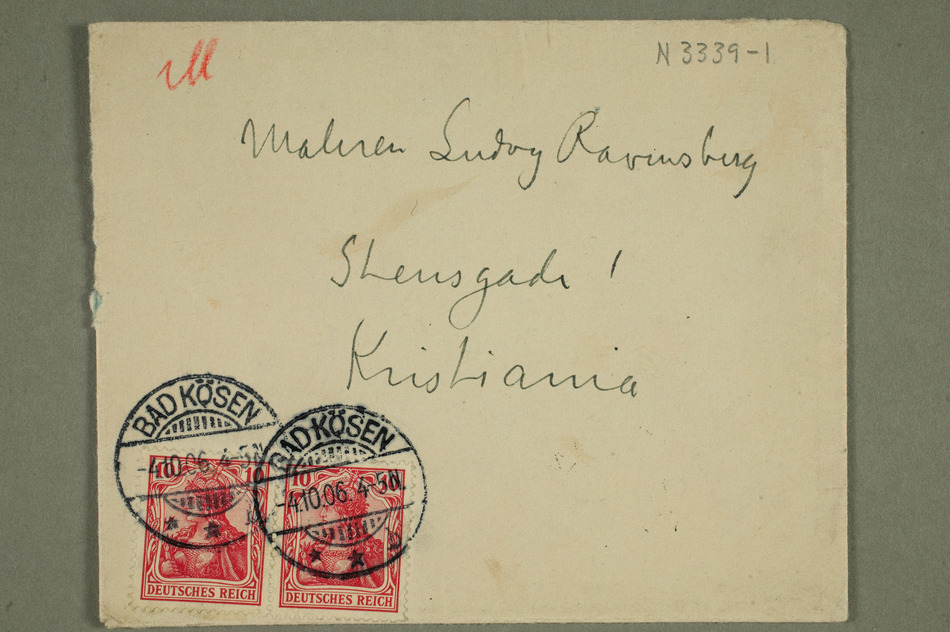 M
N 3339-1
Maleren Ludvig Ravensberg
Stensgade 1
Kristiania
BAD KÖSEN
-4.10.06. 4-5N.
BAD KÖSEN
-4.10.06. 4-5N.
10 10
DEUTSCHES REICH
10
DEUTSCHES REICH